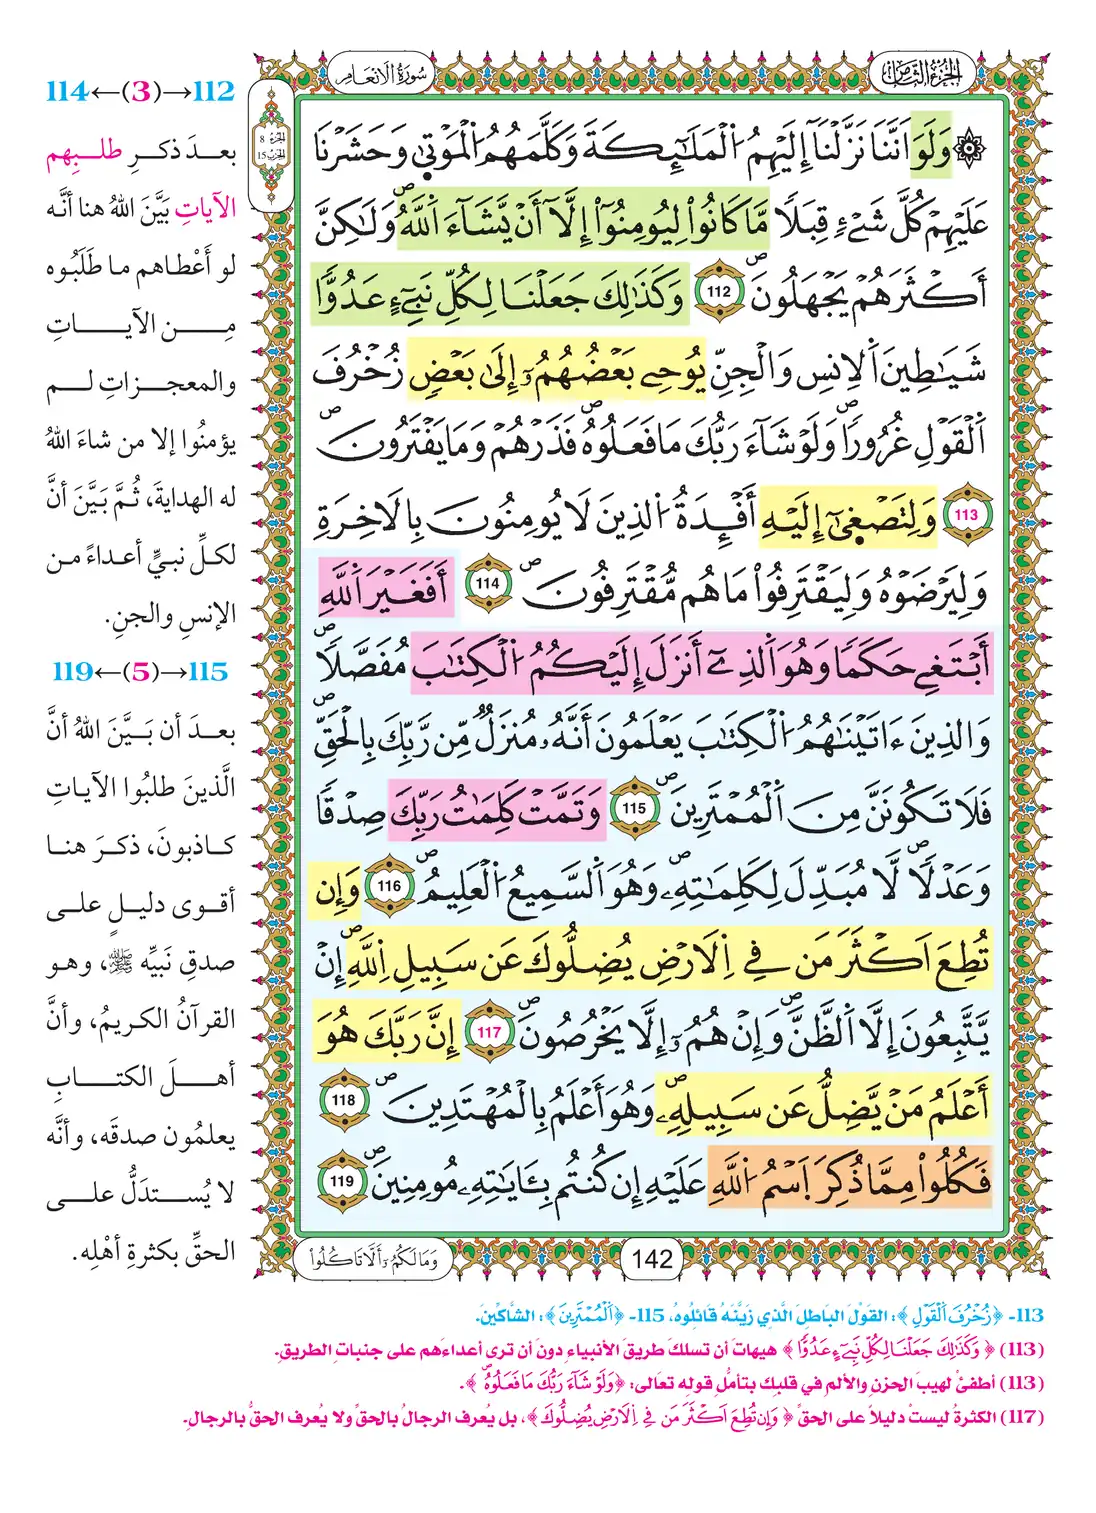 الجزء الثامن
سورة الأنعام
الجزء 8
الحزب 15
۞ وَلَوَ اَنَّنَا نَزَّلْنَآ إِلَيْهِمُ اُ۬لْمَلَٰٓئِكَةَ وَكَلَّمَهُمُ اُ۬لْمَوْت۪يٰ وَحَشَرْنَا
عَلَيْهِمْ كُلَّ شَےْءٖ قِبَلاٗ مَّا كَانُواْ لِيُومِنُوٓاْ إِلَّآ أَنْ يَّشَآءَ اَ۬للَّهُۖ وَلَٰكِنَّ
أَكْثَرَهُمْ يَجْهَلُونَۖ 112 وَكَذَٰلِكَ جَعَلْنَا لِكُلِّ نَبِےٓءٍ عَدُوّاٗ
شَيَٰطِينَ اَ۬لِانسِ وَالْجِنِّ يُوحِے بَعْضُهُمُۥٓ إِلَىٰ بَعْضٖ زُخْرُفَ
اَ۬لْقَوْلِ غُرُوراٗۖ وَلَوْ شَآءَ رَبُّكَ مَا فَعَلُوهُۖ فَذَرْهُمْ وَمَا يَفْتَرُونَۖ
113 وَلِتَصْغ۪يٰٓ إِلَيْهِ أَفْـِٕدَةُ اُ۬لذِينَ لَا يُومِنُونَ بِالَاخِرَةِ
وَلِيَرْضَوْهُ وَلِيَقْتَرِفُواْ مَا هُم مُّقْتَرِفُونَۖ 114 أَفَغَيْرَ اَ۬للَّهِ
أَبْتَغِے حَكَماٗ وَهُوَ اَ۬لذِےٓ أَنزَلَ إِلَيْكُمُ اُ۬لْكِتَٰبَ مُفَصَّلاٗۖ
وَالذِينَ ءَاتَيْنَٰهُمُ اُ۬لْكِتَٰبَ يَعْلَمُونَ أَنَّهُۥ مُنزَلٞ مِّن رَّبِّكَ بِالْحَقِّۖ
فَلَا تَكُونَنَّ مِنَ اَ۬لْمُمْتَرِينَۖ 115 وَتَمَّتْ كَلِمَٰتُ رَبِّكَ صِدْقاٗ
وَعَدْلاٗۖ لَّا مُبَدِّلَ لِكَلِمَٰتِهِۦۖ وَهُوَ اَ۬لسَّمِيعُ اُ۬لْعَلِيمُۖ 116 وَإِن
تُطِعَ اَكْثَرَ مَن فِے اِ۬لَارْضِ يُضِلُّوكَ عَن سَبِيلِ اِ۬للَّهِۖ إِنْ
يَّتَّبِعُونَ إِلَّا اَ۬لظَّنَّۖ وَإِنْ هُمُۥٓ إِلَّا يَخْرُصُونَۖ 117 إِنَّ رَبَّكَ هُوَ
أَعْلَمُ مَنْ يَّضِلُّ عَن سَبِيلِهِۦۖ وَهُوَ أَعْلَمُ بِالْمُهْتَدِينَۖ 118
فَكُلُواْ مِمَّا ذُكِرَ اَ۪سْمُ اُ۬للَّهِ عَلَيْهِ إِن كُنتُم بِـَٔايَٰتِهِۦ مُومِنِينَۖ 119
142
وَمَا لَكُمُۥٓ أَلَّا تَاكُلُواْ
112→(3)←114
بعدَ ذكرِ طلبِهم
الآياتِ بَيَّنَ اللهُ هنا أنَّه
لو أَعْطاهم ما طَلَبُوه
مِن الآياتِ
والمعجزاتِ لم
يؤمنُوا إلا من شاءَ اللهُ
له الهدايةَ، ثُمَّ بَيَّنَ أنَّ
لكلِّ نبيٍّ أعداءً من
الإنسِ والجنِ.
115→(5)←119
بعدَ أن بَيَّنَ اللهُ أنَّ
الَّذينَ طلبُوا الآياتِ
كاذبونَ، ذكرَ هنا
أقوى دليلٍ على
صدقِ نَبيِّه ﷺ، وهو
القرآنُ الكريمُ، وأنَّ
أهلَ الكتابِ
يعلمُون صدقَه، وأنَّه
لا يُستدَلُّ على
الحقِّ بكثرةِ أهْلِه.
113- ﴿زُخْرُفَ اَ۬لْقَوْلِ﴾: القَوْلَ البَاطِلَ الَّذِي زَيَّنَهُ قَائِلُوهُ، 115- ﴿اَ۬لْمُمْتَرِينَ﴾: الشَّاكِّينَ.
(113) ﴿وَكَذَٰلِكَ جَعَلْنَا لِكُلِّ نَبِےٓءٍ عَدُوّاٗ﴾ هيهاتَ أن تسلكَ طريقَ الأنبياءِ دونَ أن ترى أعداءَهم على جنبات الطريقِ.
(113) أطفئْ لهيبَ الحزنِ والألمِ في قلبِك بتأملِ قوله تعالى: ﴿وَلَوْ شَآءَ رَبُّكَ مَا فَعَلُوهُۖ﴾.
(117) الكثرةُ ليستْ دليلاً على الحقِّ ﴿وَإِن تُطِعَ اَكْثَرَ مَن فِے اِ۬لَارْضِ يُضِلُّوكَ﴾، بل يُعرف الرجالُ بالحقِّ ولا يُعرف الحقُّ بالرجالِ.